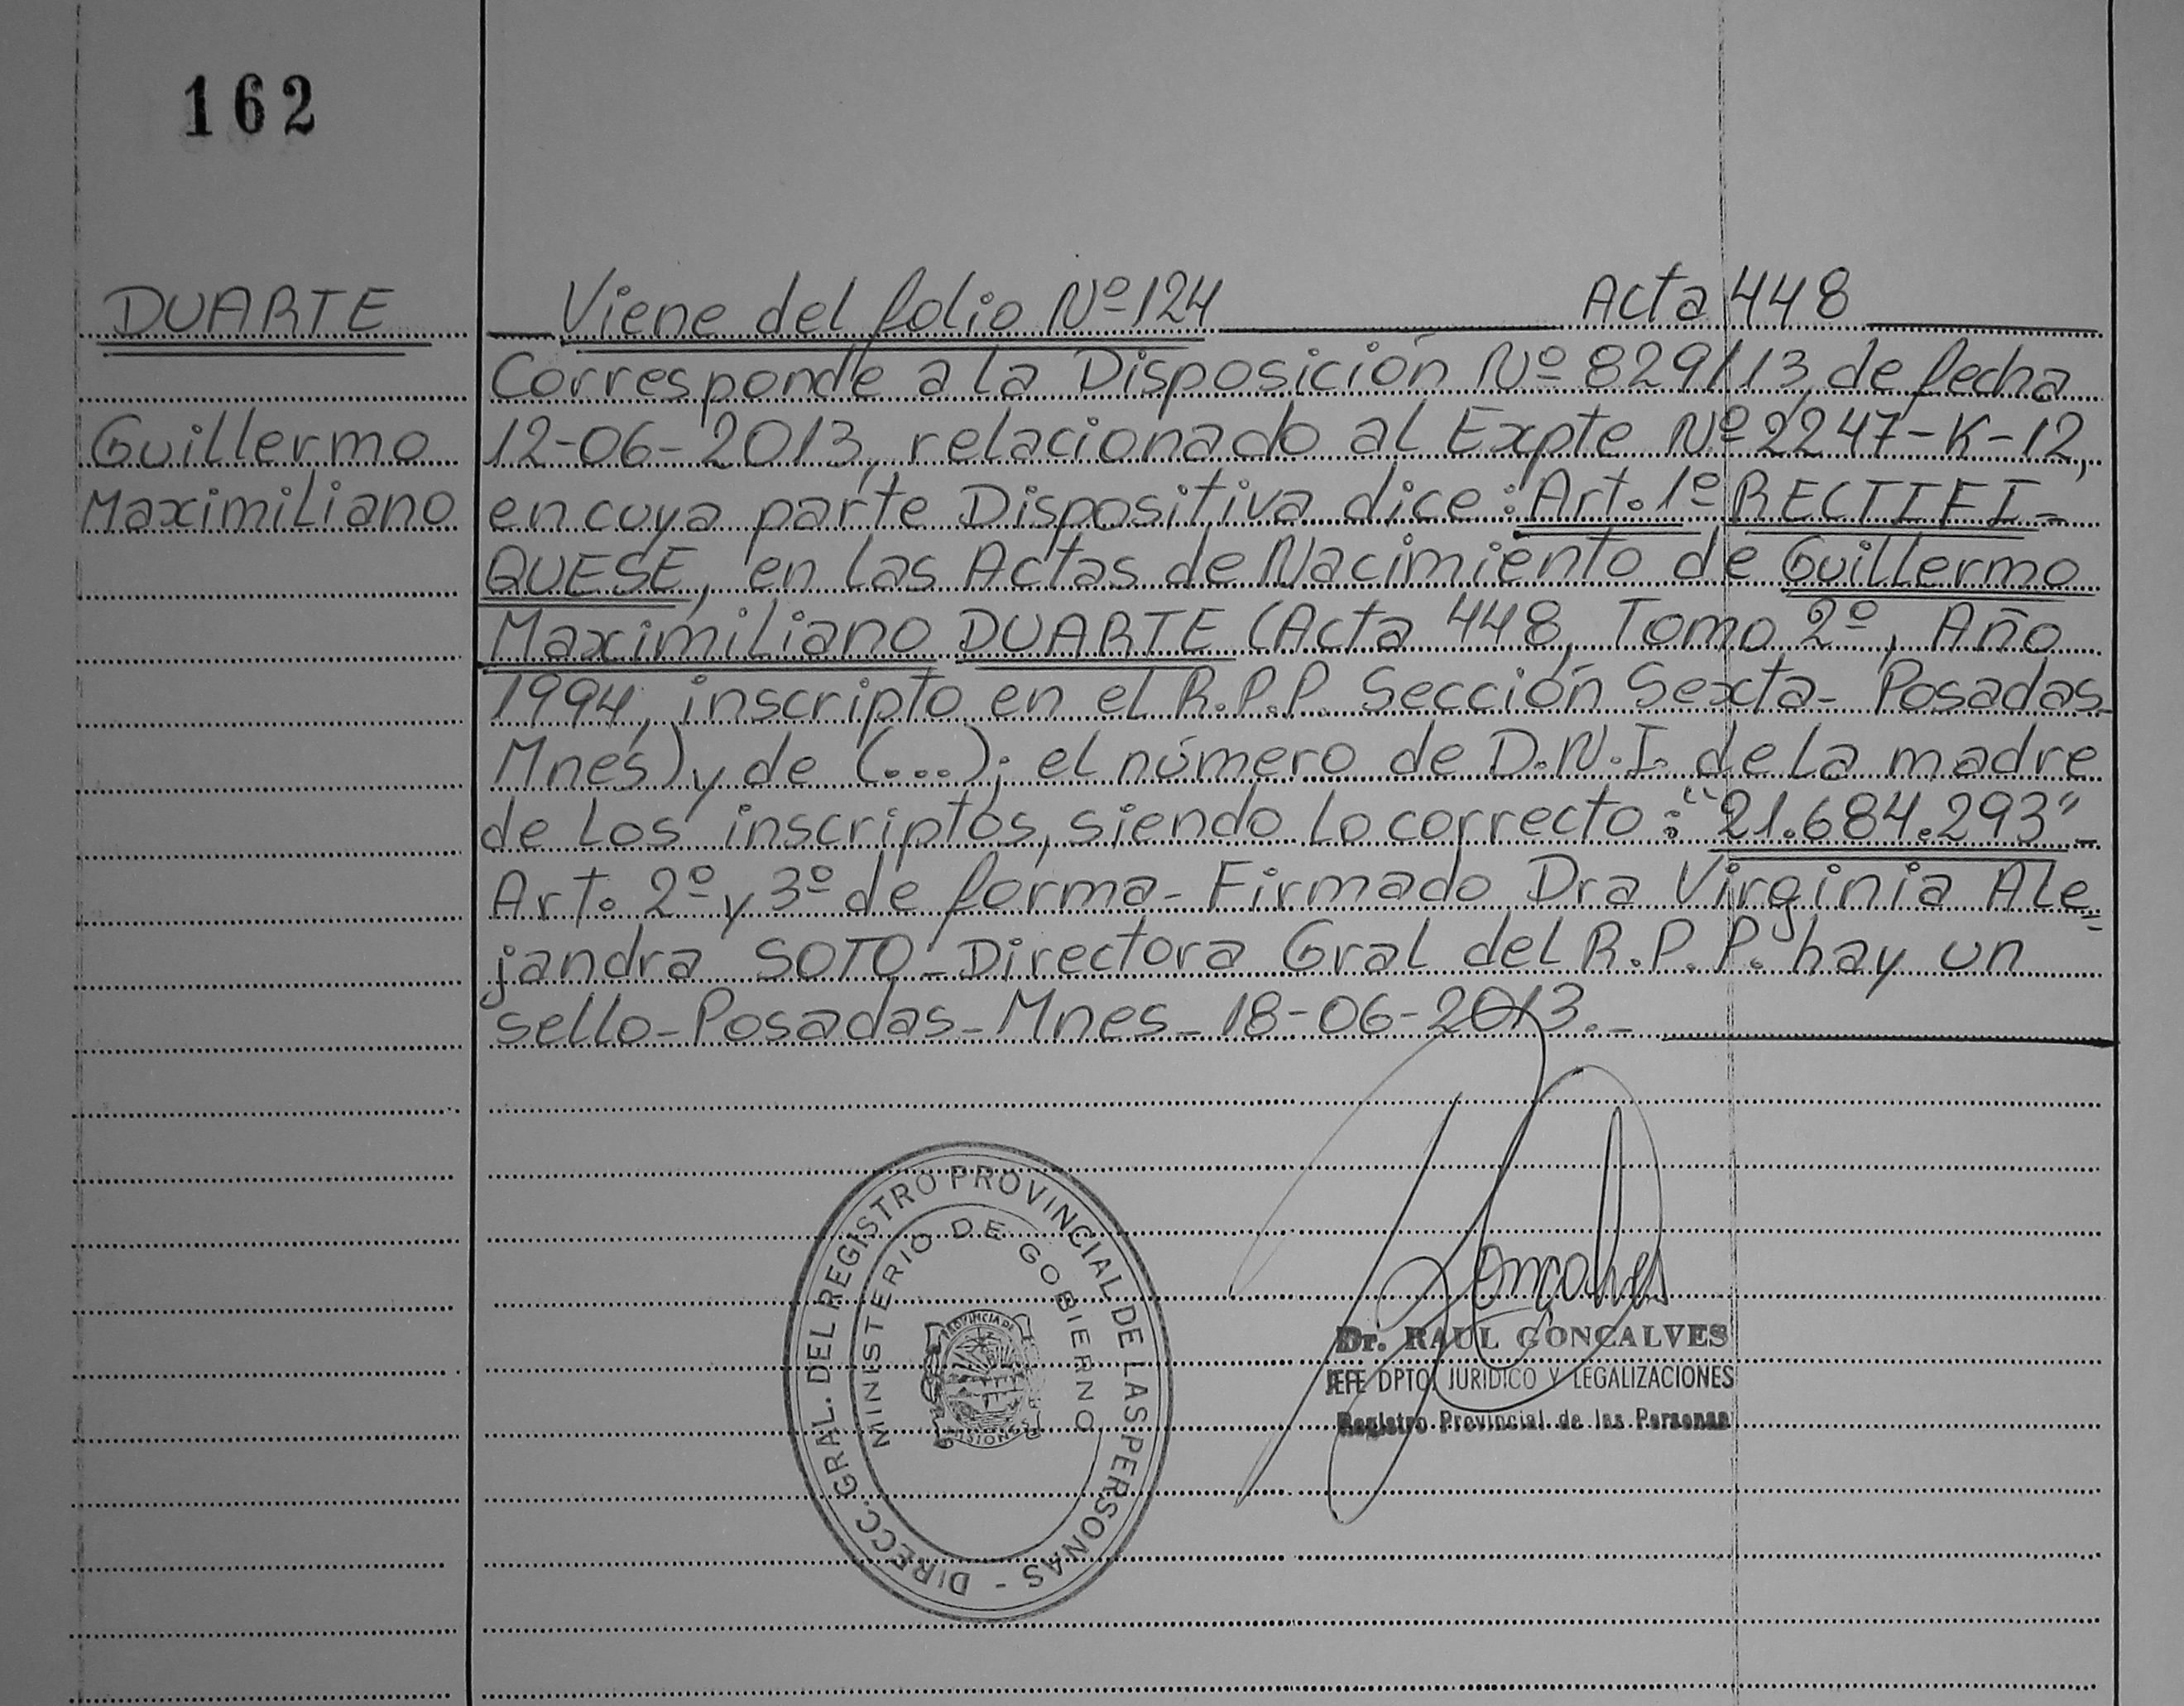 162
DUARTE
Guillermo
Maximiliano
Viene del folio Nº 124 Acta 448
Corresponde a la Disposición Nº 829/13 de fecha
12-06-2013, relacionado al Expte Nº 2247-K-12,
en cuya parte Dispositiva dice: Art. 1º RECTIFI-
QUESE, en las Actas de Nacimiento de Guillermo
Maximiliano DUARTE (Acta 448, Tomo 2º, Año
1994, inscripto en el R.P.P. Sección Sexta- Posadas
Mnes) y de (...); el número de D.N.I. de la madre
de los inscriptos, siendo lo correcto: "21.684.293"-
Art. 2º y 3º de forma- Firmado Dra Virginia Ale=
jandra SOTO- Directora Gral del R.P.P. hay un
sello- Posadas- Mnes- 18-06-2013.-
DIRECC. GRAL. DEL REGISTRO PROVINCIAL DE LAS PERSONAS -
MINISTERIO DE GOBIERNO
PROVINCIA DE
MISIONES
Goncalves
Dr. RAUL GONCALVES
JEFE DPTO. JURIDICO Y LEGALIZACIONES
Registro Provincial de las Personas